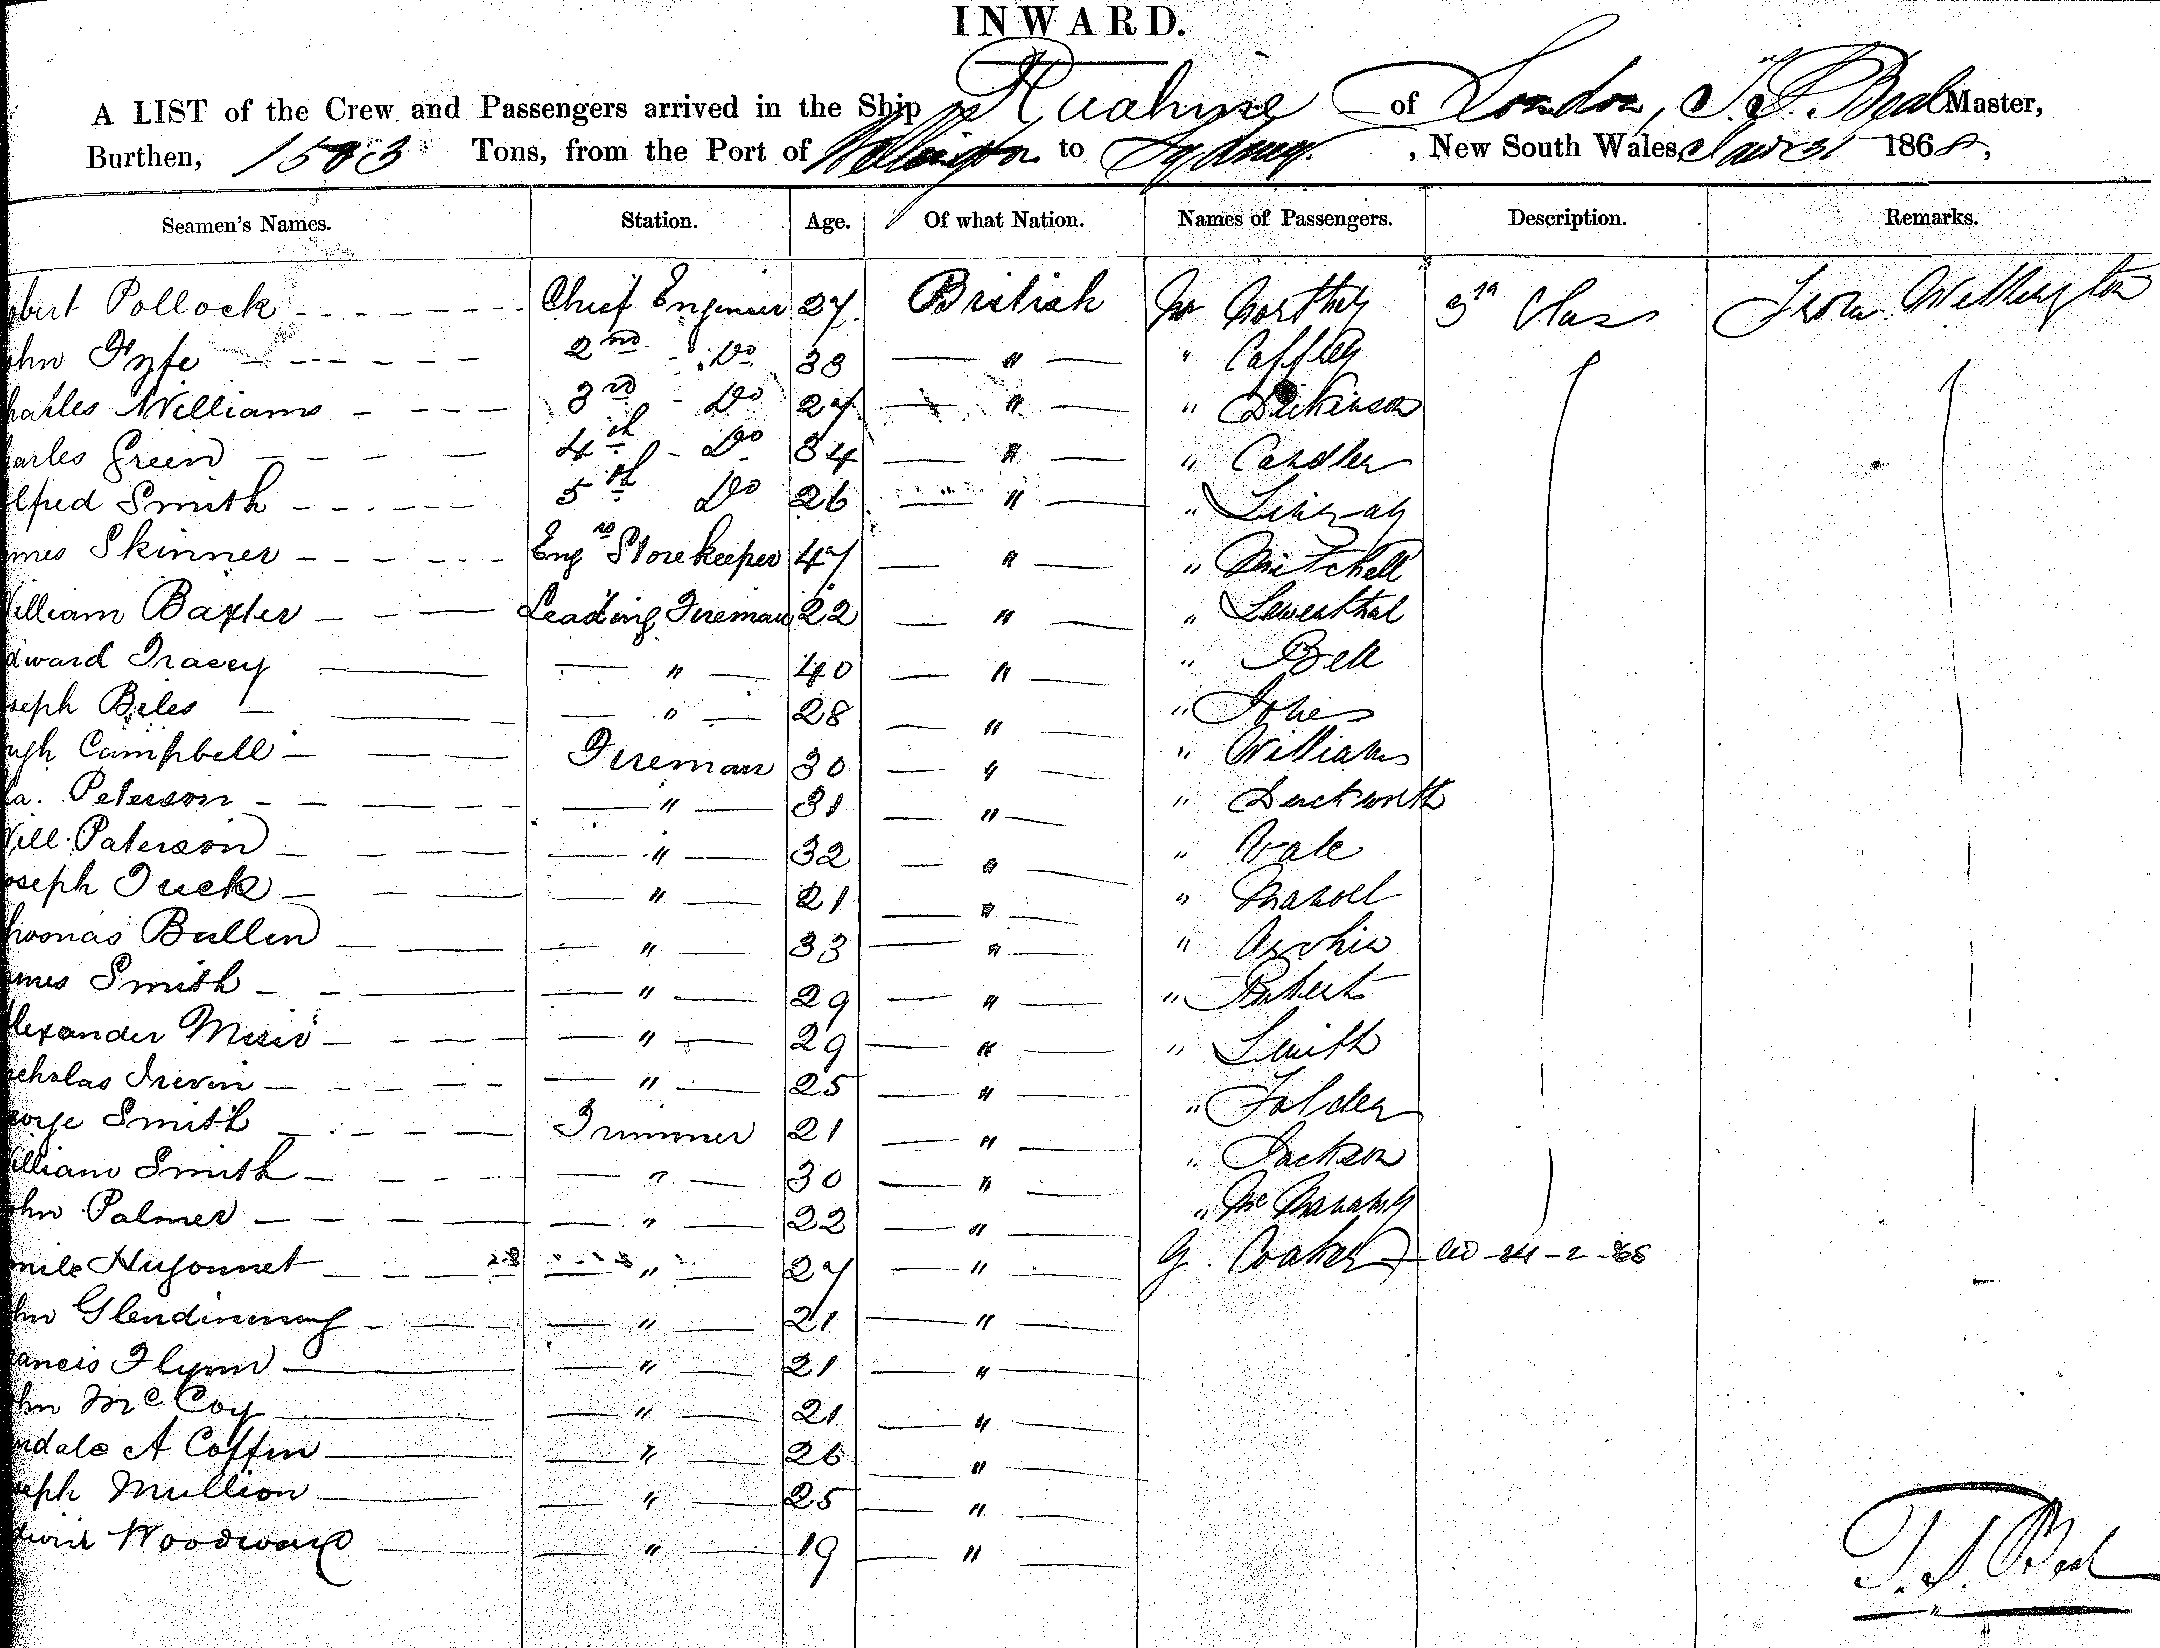 INWARD.
A LIST of the Crew and Passengers arrived in the Ship Ruahine of London, T. S. Beal Master,
Burthen, 1503 Tons, from the Port of Wellington to Sydney. , New South Wales 1868,
Seamen's Names. Station. Age. Of what Nation. Names of Passengers. Description. Remarks.
obert Pollock Chief Engineer 27 British Mr Northey 3rd Class From Wellington
ohn Fyfe 2nd Do 33 " " Caffley
harles Williams 3rd Do 27 " " Dickinson
harles Green 4th Do 34 " " Candler
lfred Smith 5th Do 26 " "
mes Skinner Engrs Storekeeper 47 " " Mitchell
illiam Baxter Leading Fireman 22 " " Lewenthal
dward Tracey " 40 " " Bell
seph Beles " 28 " " Jones
ugh Campbell Fireman 30 " " Williams
a. Peterson " 31 " " Duckworth
Will. Paterson " 32 " " Vale
oseph Tuck " 21 " "
homas Bullen " 33 " "
mes Smith " 29 " " Roberts
lexander Muir " 29 " " Smith
icholas Irevin " 25 " " Folder
eorge Smith Trimmer 21 " " Jackson
illiam Smith " 30 " "
ohn Palmer " 22 " G. Coaker
mile Hugonnet 28 " 27 "
hn Glendinning " 21 "
rancis Flynn " 21 "
hn McCoy " 21 "
ndale A Coffin " 26 "
seph Mullion " 25 "
dwin Woodward " 19 "
T. S. Beal